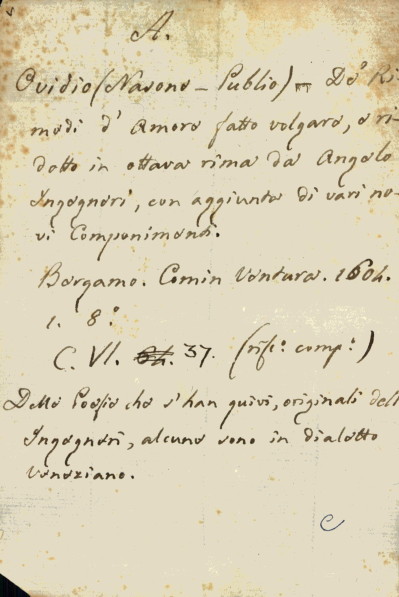 A.
Ovidio (Nasone – Publio) = De' Ri-
medi d' Amore fatto volgare, e ri-
dotto in ottava rima da Angelo
Ingegneri, con aggiunta di vari no-
vi Componimenti.
Bergamo. Comin Ventura. 1604.
1. 8.°
C. VI. 37. (rife.° comp.°)
Delle Poesie che s'han quivi, originali dell'
Ingegneri, alcune sono in dialetto
veneziano.
C